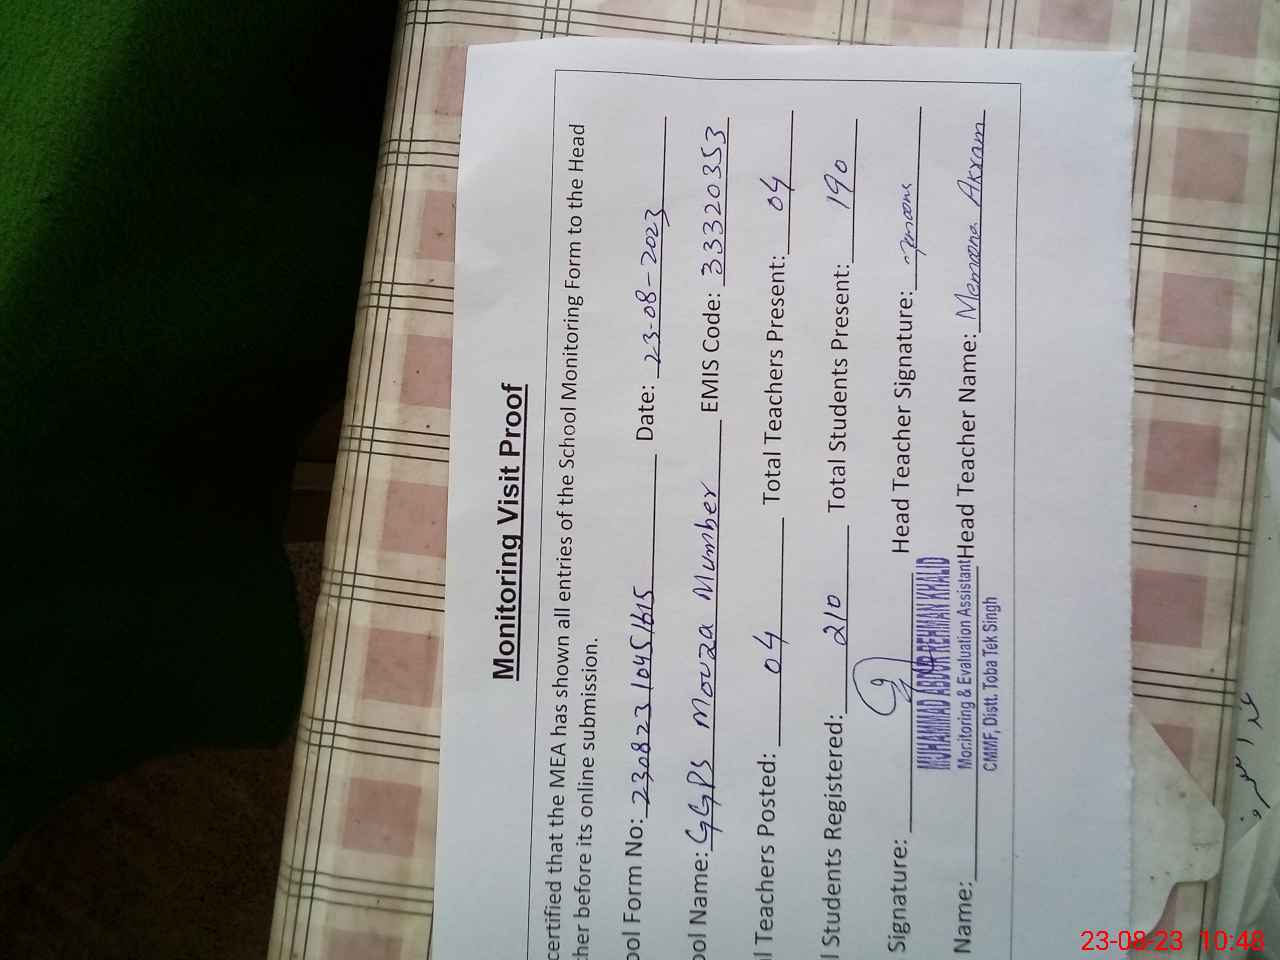 Monitoring Visit Proof
certified that the MEA has shown all entries of the School Monitoring Form to the Head
cher before its online submission.
ool Form No: 230823 10451615 Date: 23-08-2023
ool Name: GGPS Mouza Mumber EMIS Code: 33320353
l Teachers Posted: 04 Total Teachers Present: 04
l Students Registered: 210 Total Students Present: 190
Signature: Head Teacher Signature:
MUHAMMAD ABDUR REHMAN KHALID
Name: Monitoring & Evaluation Assistant Head Teacher Name: Memoona Akram
CMMF, Distt. Toba Tek Singh
23-08-23 10:48